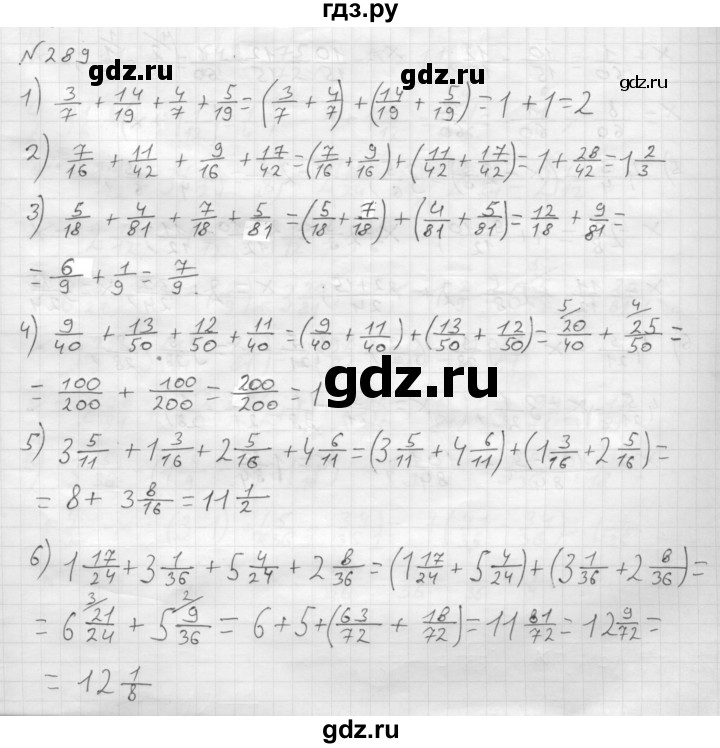 гдз.ру
№289
gdz.ru
gdz.ru
gdz.ru
1) 3/7 + 14/19 + 4/7 + 5/19 = (3/7 + 4/7) + (14/19 + 5/19) = 1 + 1 = 2
2) 7/16 + 11/42 + 9/16 + 17/42 = (7/16 + 9/16) + (11/42 + 17/42) = 1 + 28/42 = 1 2/3
3) 5/18 + 4/81 + 7/18 + 5/81 = (5/18 + 7/18) + (4/81 + 5/81) = 12/18 + 9/81 =
= 6/9 + 1/9 = 7/9.
4) 9/40 + 13/50 + 12/50 + 11/40 = (9/40 + 11/40) + (13/50 + 12/50) = 5/ 20/40 + 4/ 25/50 =
= 100/200 + 100/200 = 200/200 = 1
gdz.ru
5) 3 5/11 + 1 3/16 + 2 5/16 + 4 6/11 = (3 5/11 + 4 6/11) + (1 3/16 + 2 5/16) =
= 8 + 3 8/16 = 11 1/2
6) 1 17/24 + 3 1/36 + 5 4/24 + 2 8/36 = (1 17/24 + 5 4/24) + (3 1/36 + 2 8/36) =
= 6 3/ 21/24 + 5 2/ 9/36 = 6 + 5 + (63/72 + 18/72) = 11 81/72 = 12 9/72 =
= 12 1/8
gdz.ru
gdz.ru
gdz.ru